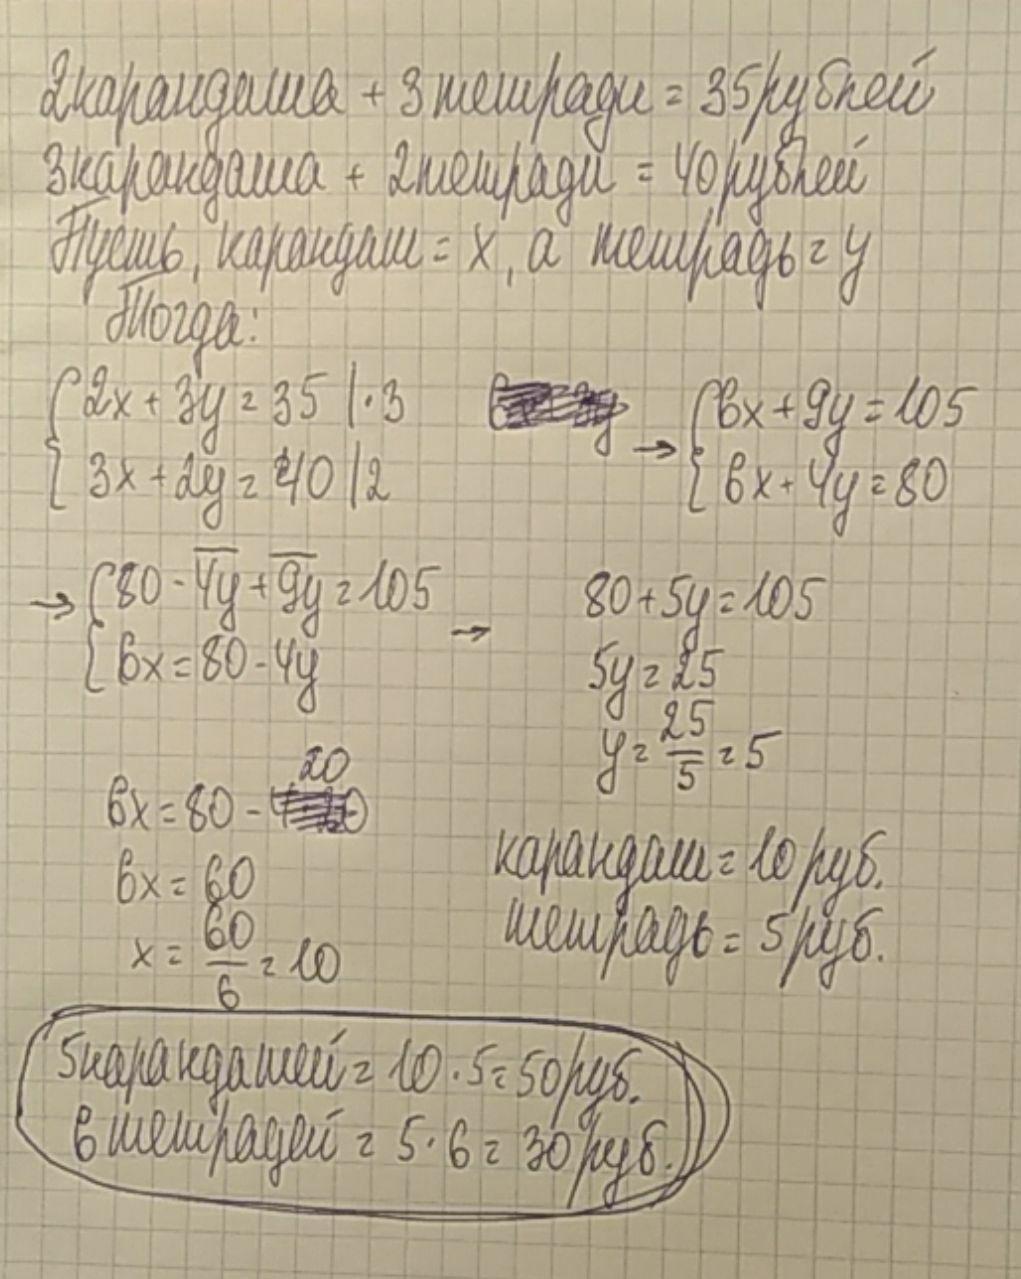 2 карандаша + 3 тетради = 35 рублей
3 карандаша + 2 тетради = 40 рублей
Пусть, карандаш = x, а тетрадь = y
Тогда:
{2x + 3y = 35 | · 3
{3x + 2y = 40 | 2
→ {6x + 9y = 105
{6x + 4y = 80
→ {80 - 4y + 9y = 105
{6x = 80 - 4y
→
80 + 5y = 105
5y = 25
y = 25/5 = 5
6x = 80 - 20
6x = 60
x = 60/6 = 10
карандаш = 10 руб.
тетрадь = 5 руб.
5 карандашей = 10 · 5 = 50 руб.
6 тетрадей = 5 · 6 = 30 руб.